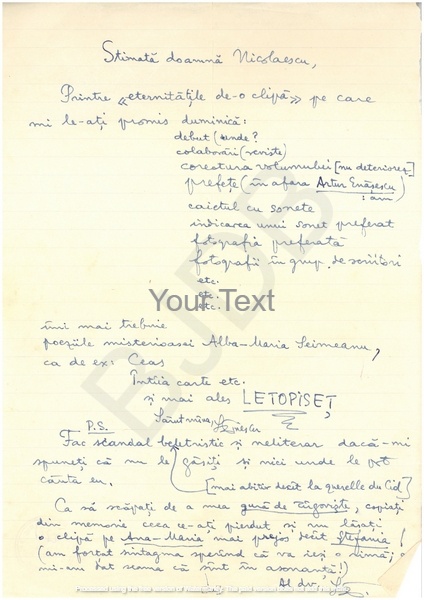 Stimată doamnă Nicolaescu,
Printre «eternitățile de-o clipă» pe care
mi le-ați promis duminică:
debut (unde?
colaborări (reviste)
corectura volumului [nu deteriorez]
prefețe (în afara Artur Enășescu)
: am
caietul cu sonete
indicarea unui sonet preferat
fotografia preferată
fotografii în grup de scriitori
etc.
etc.
etc.
Your Text
BJDB
îmi mai trebuie
poeziile misterioasei Alba-Maria Seimeanu,
ca de ex: Ceas
Întîia carte etc.
și mai ales LETOPISEȚ
Sărut mîna,
P.S.
Fac scandal beletristic și neliterar dacă-mi
spuneți că nu le găsiți și nici unde le pot
căuta eu.
[mai abitir decît la querelle du Cid]
Ca să scăpați de a mea gură de țigoriște, copiați
din memorie ceea ce-ați pierdut și nu lăsați
o clipă pe Ana-Maria mai prejos decît Ștefania!
(am forțat sintagma sperînd că va ieși o rimă;
mi-am dat seama că sînt în asonanță!)
Al dv.